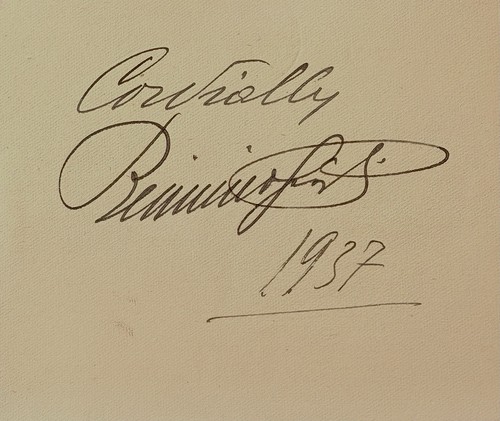 Cordially
Beniamino Gigli
1937